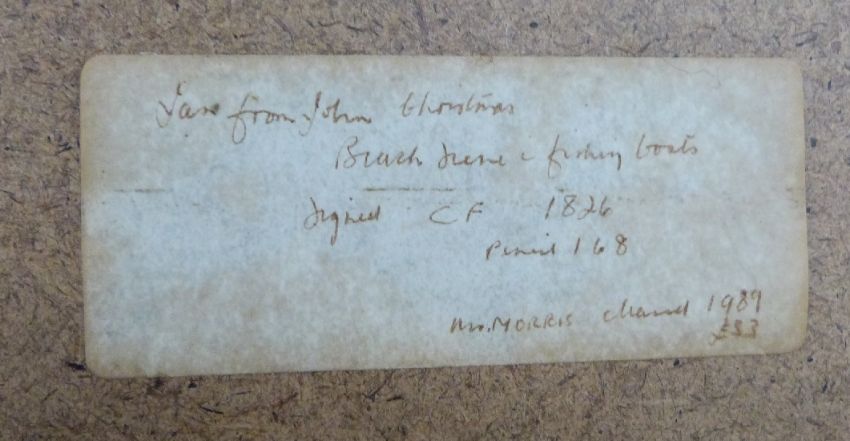 Jane from John Christmas
Beach scene c fishing boats
Signed CF 1826
Pencil 168
Mr. MORRIS cleaned 1989
£33